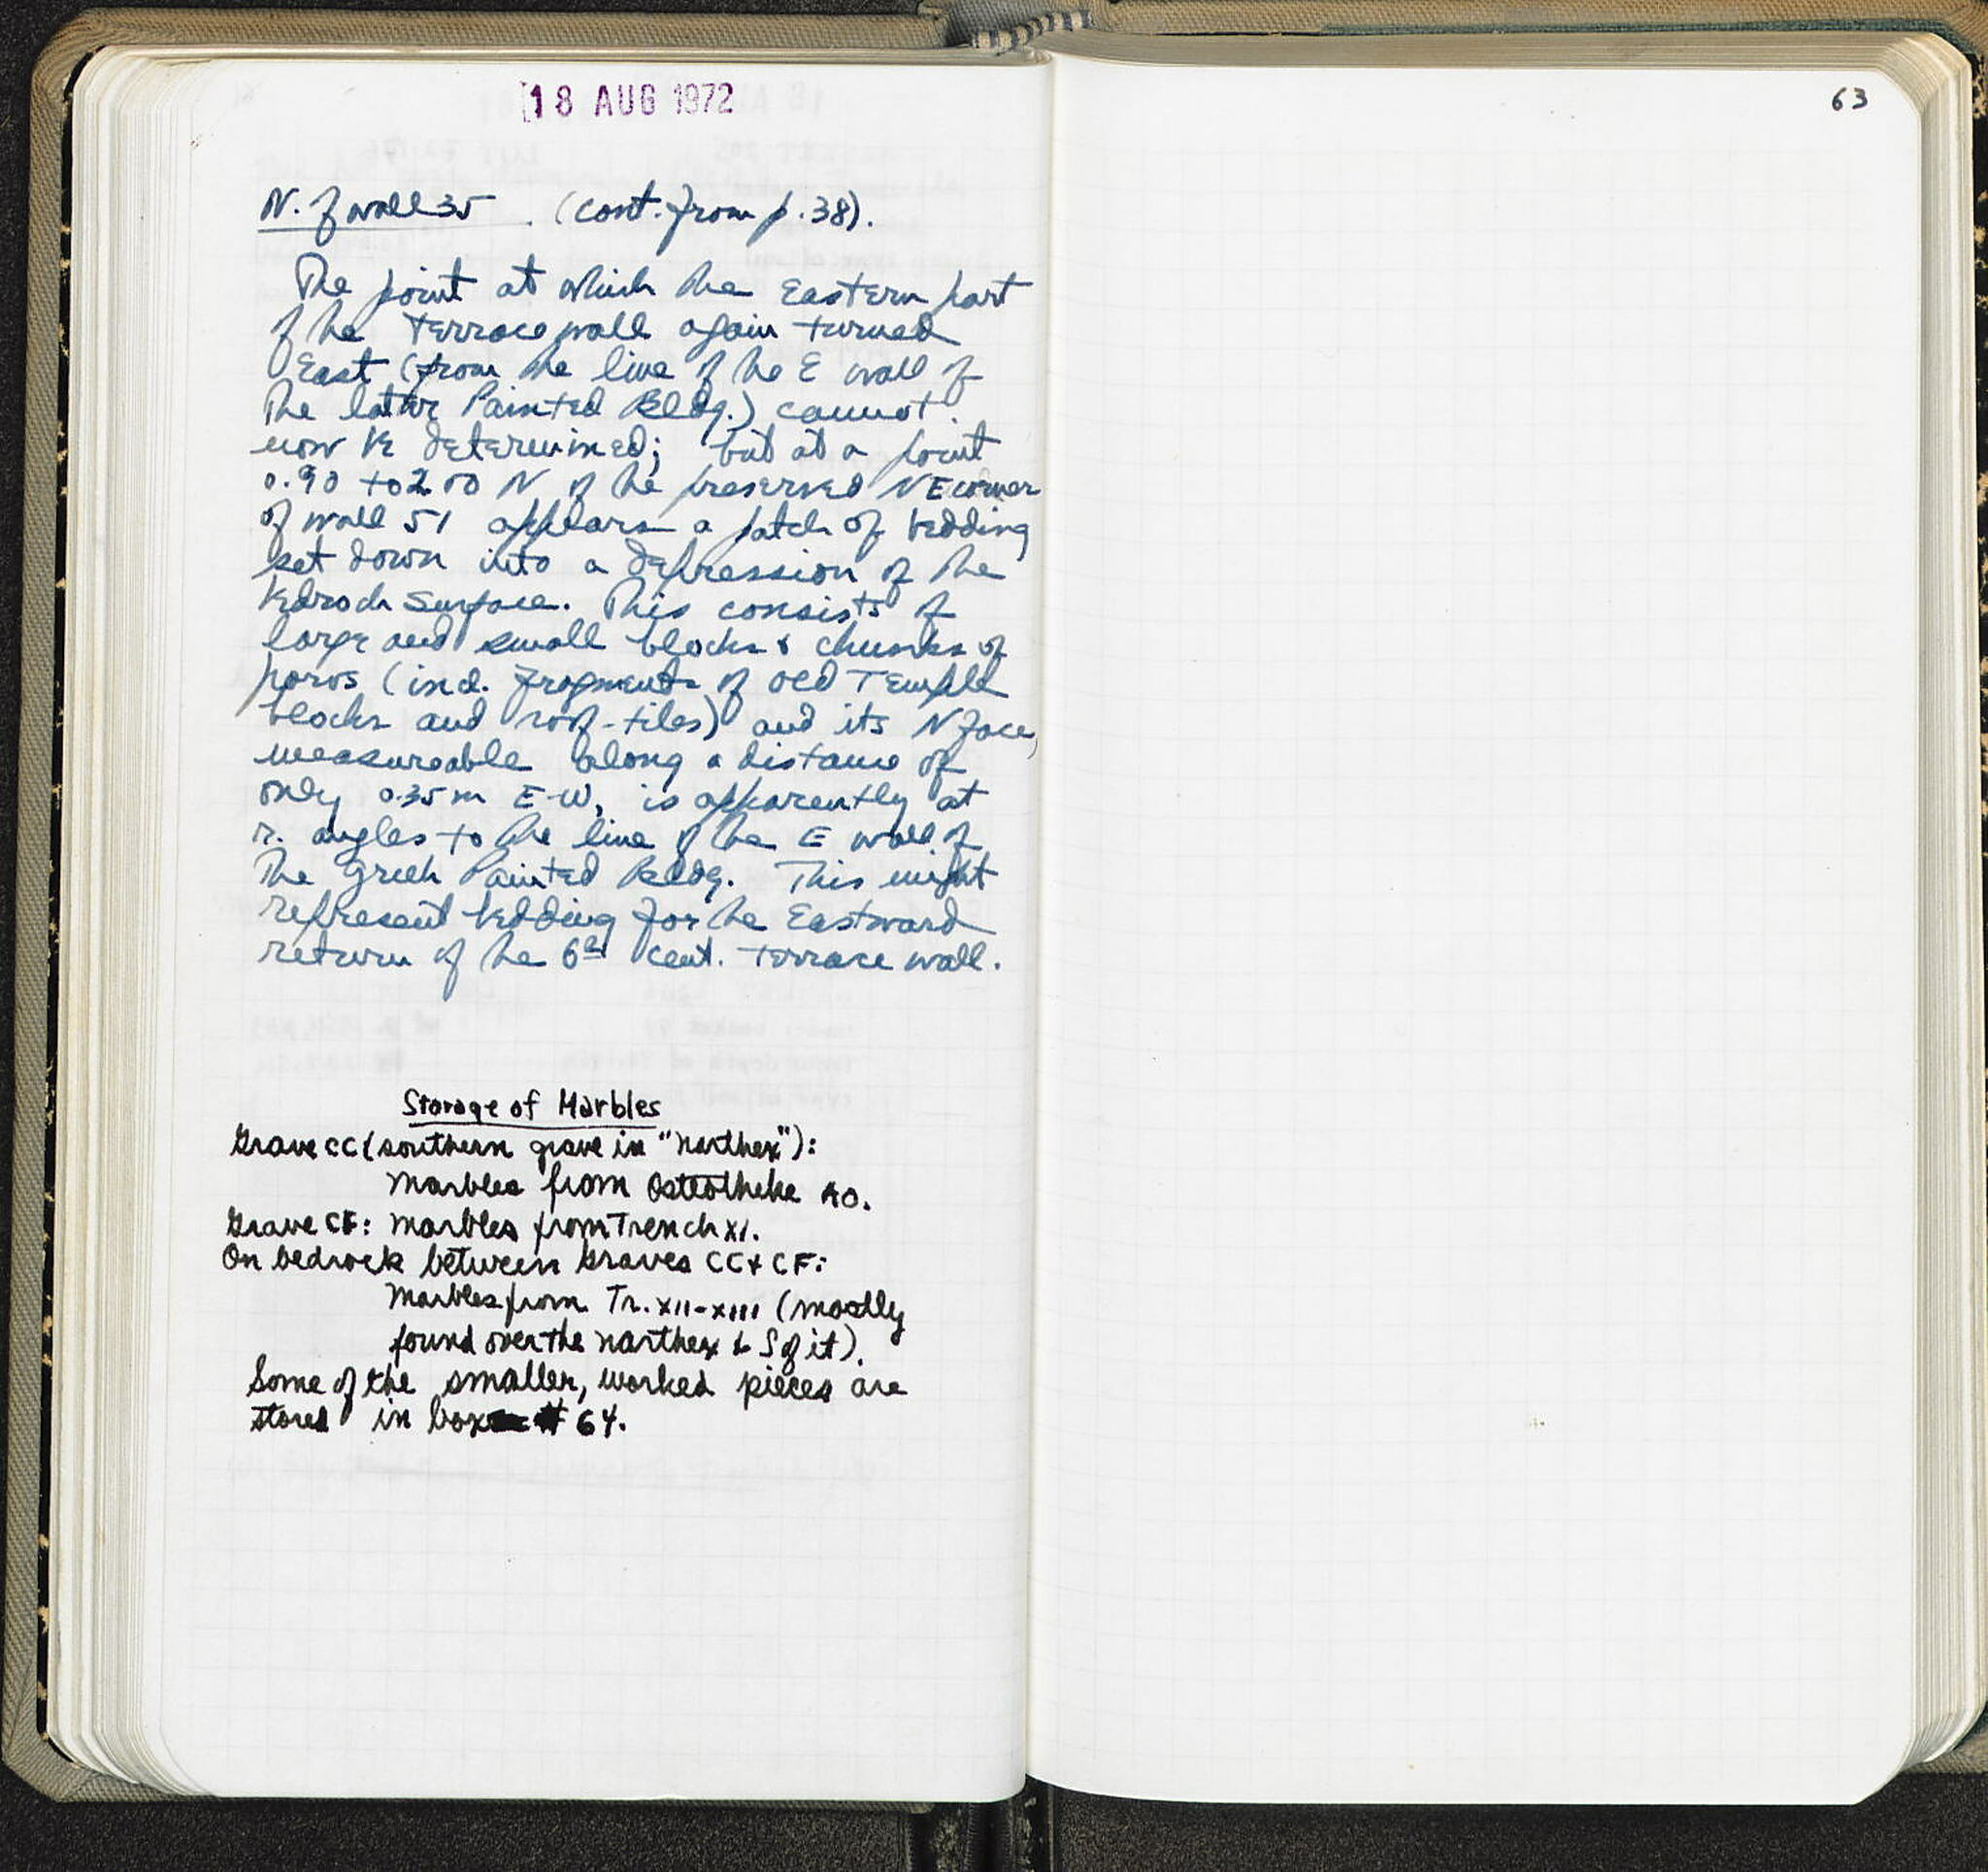 18 AUG 1972
63
N. of wall 35 (cont. from p. 38).
The point at which the Eastern part
of the terrace wall again turned
East (from the line of the E wall of
the later Painted Bldg.) cannot
now be determined; but at a point
0.90 to 2.00 N of the preserved NE corner
of wall 51 appears a patch of bedding
set down into a depression of the
bedrock surface. This consists of
large and small blocks & chunks of
poros (incl. fragments of Old Temple
blocks and roof-tiles) and its N face,
measureable along a distance of
only 0.35 m E-W, is apparently at
r. angles to the line of the E wall of
the Greek Painted Bldg. This might
represent bedding for the Eastward
return of the 6th cent. terrace wall.
Storage of Marbles
Grave CC (southern grave in "narthex"):
Marbles from Osteotheke AO.
Grave CF: Marbles from Trench XI.
On bedrock between Graves CC & CF:
Marbles from Tr. XII-XIII (mostly
found over the narthex & S of it).
Some of the smaller, worked pieces are
stored in box # 64.